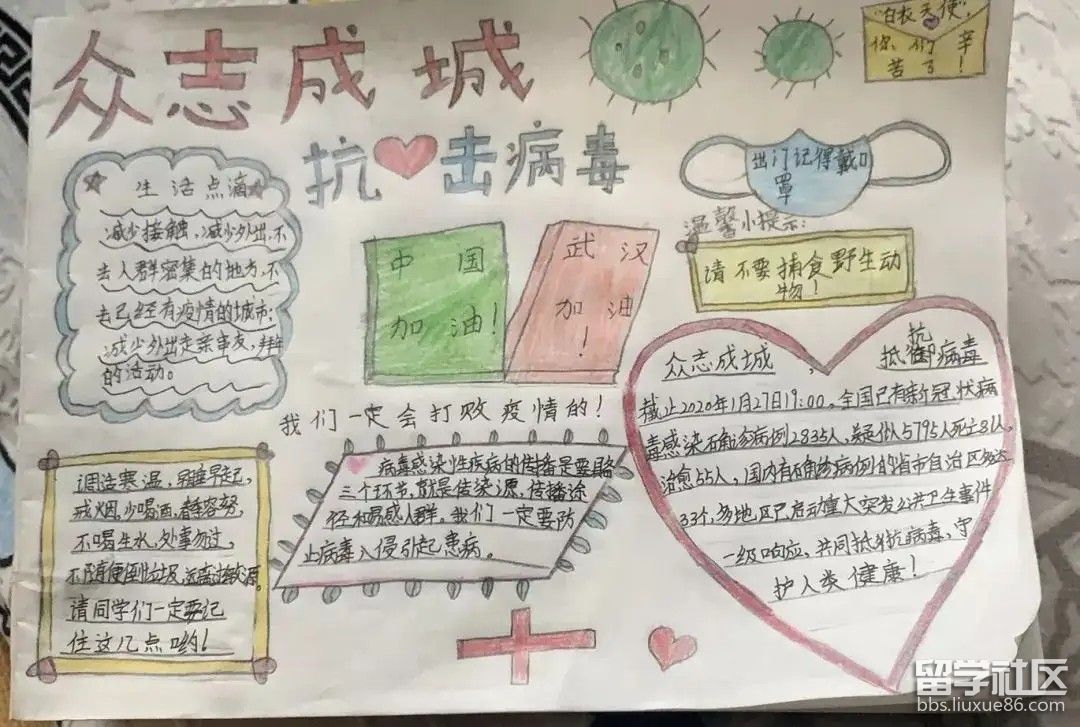 众志成城
抗击病毒
"白衣天使"
你们辛
苦了!
出门记得戴口
罩
温馨小提示:
请不要捕食野生动
物!
生活点滴
减少接触,减少外出,不
去人群密集的地方,不
去已经有疫情的城市;
减少外出走亲串友,
的活动。
中国
加油!
武汉
加油
!
我们一定会打败疫情的!
众志成城,
抗
抵御病毒
截止2020年1月27日19:00,全国已有新冠状病
毒感染确诊病例2835人,疑似人5795人死亡81人,
治愈55人,国内有确诊病例的省市自治区多达
33个,多地区已启动重大突发公共卫生事件
一级响应,共同抵抗病毒,守
护人类健康!
病毒感染性疾病的传播是要
三个环节,就是传染源,传播途
径和易感人群,我们一定要防
止病毒入侵引起患病。
调连寒温,早起,
戒烟,少喝酒,
不喝生水,处事勿过,
不随便倒垃圾,远离
请同学们一定要记
住这几点哟!
留学社区
bbs.liuxue86.com